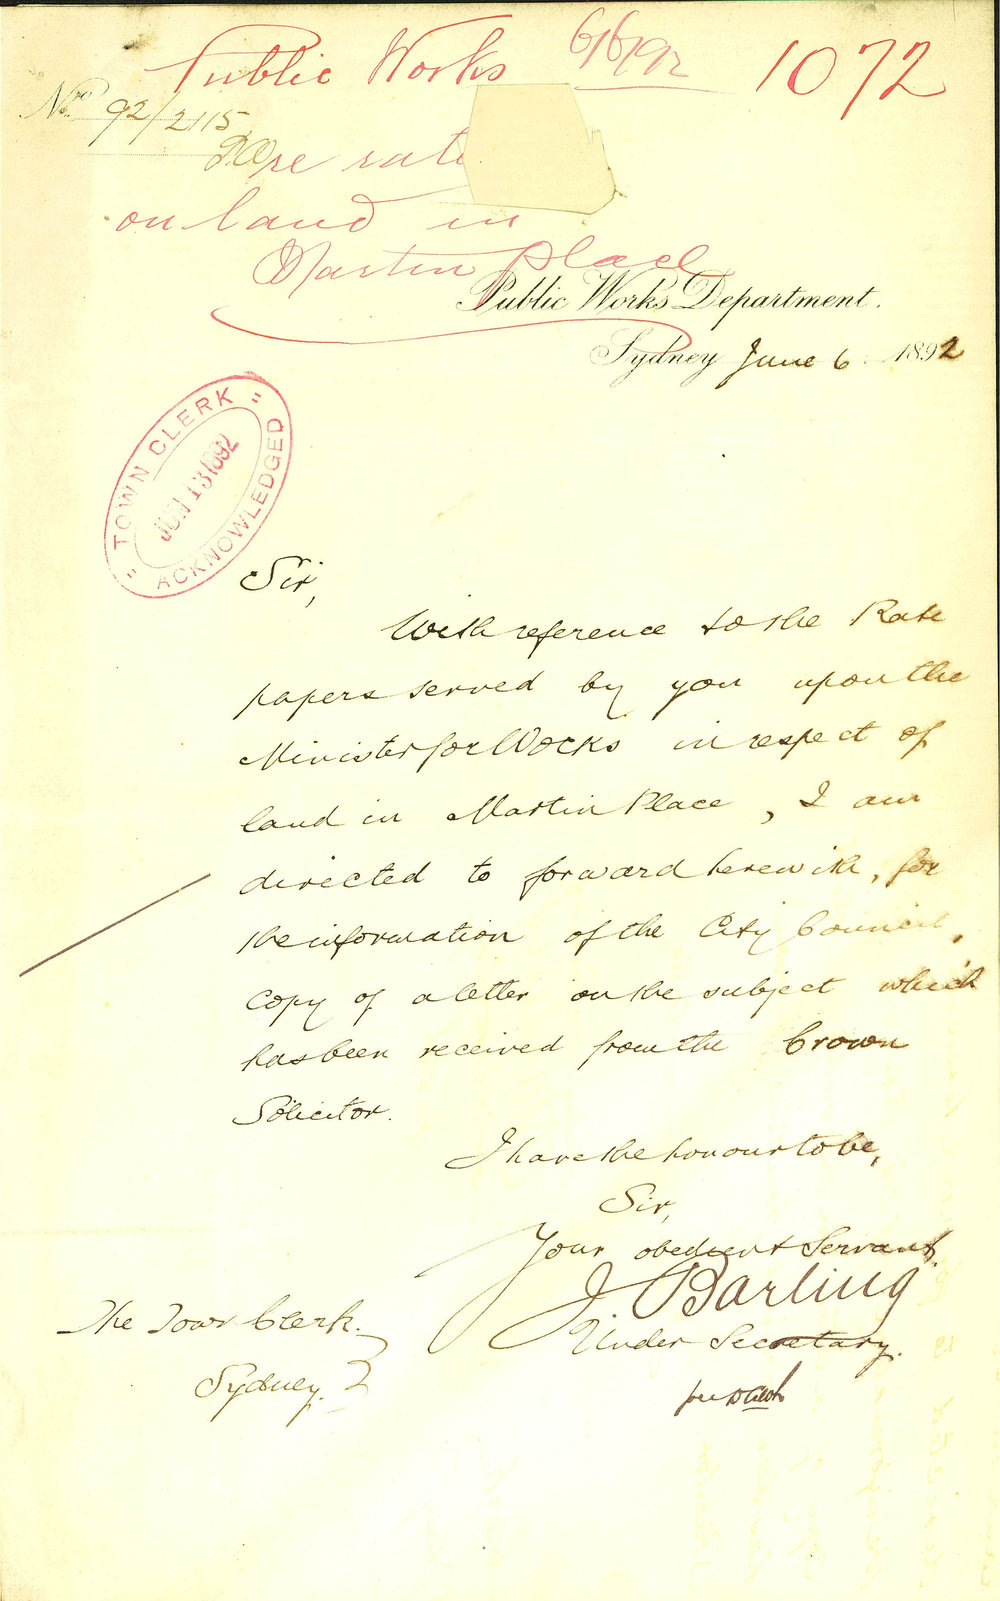 Public Works 6/6/92 1072
No. 92/2115
re rate
on land in
Martin Place
Public Works Department.
Sydney June 6 1892
"TOWN CLERK"
JUN 13 1892
ACKNOWLEDGED
Sir,
With reference to the Rate
papers served by you upon the
Minister for Works in respect of
land in Martin Place, I am
directed to forward herewith, for
the information of the City Council,
copy of a letter on the subject which
has been received from the Crown
Solicitor.
I have the honour to be,
Sir,
Your obedient Servant.
J. Barling
Under Secretary.
The Town Clerk.
Sydney.